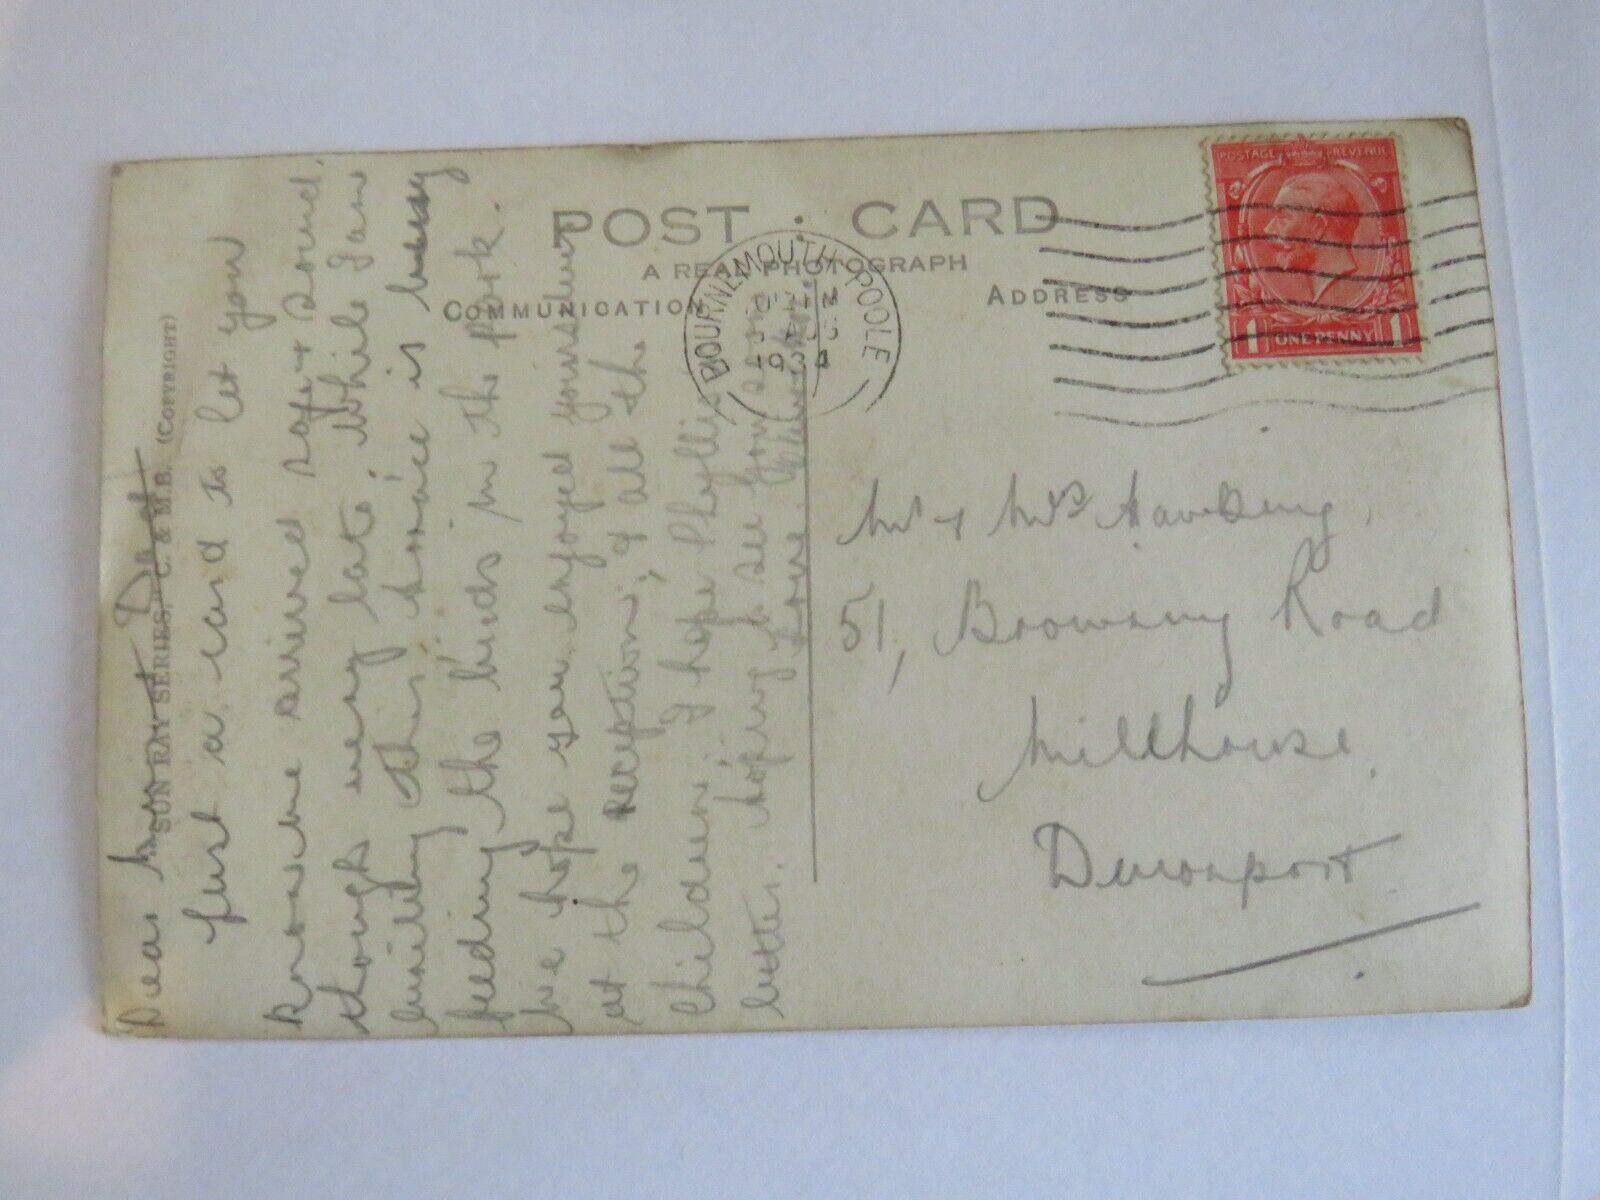 POST CARD
A REAL PHOTOGRAPH
COMMUNICATION
ADDRESS
"SUN RAY SERIES," C. & M.B. (COPYRIGHT)
BOURNEMOUTH POOLE
1934
POSTAGE REVENUE
1 ONE PENNY 1
Dear
just a card to let you
know we arrived safe & sound.
though very late; while I am
writing this Horace is busy
feeding the birds in the Park.
We hope you enjoyed yourselves
at the Reception; & all the
children; I hope Phyllis
letter. hoping to see you soon
Love
Mr & Mrs Hawking,
51, Browning Road
Millhouse
Devonport